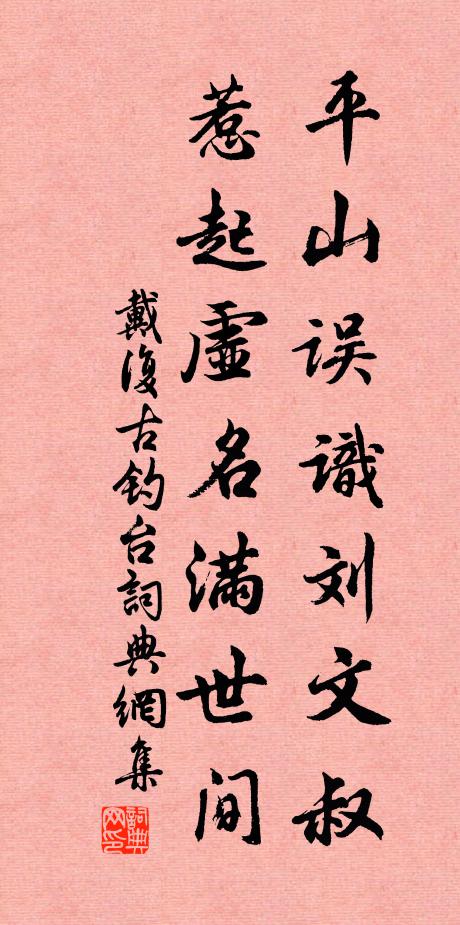 平山误識刘文叔
惹起虛名满世间
戴復古钓台詞典網集
詞典网印